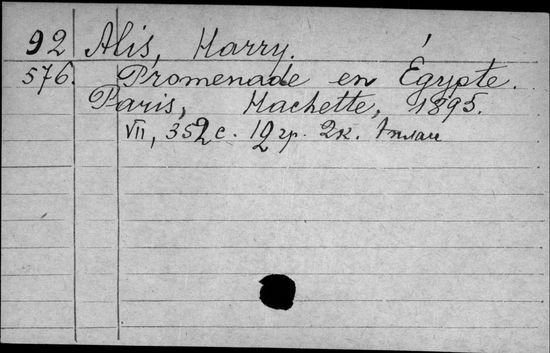 92 Alis, Harry.
576. Promenade en Égypte.
Paris, Hachette, 1895.
VII, 352 с. 12 гр. 2к. 1 план